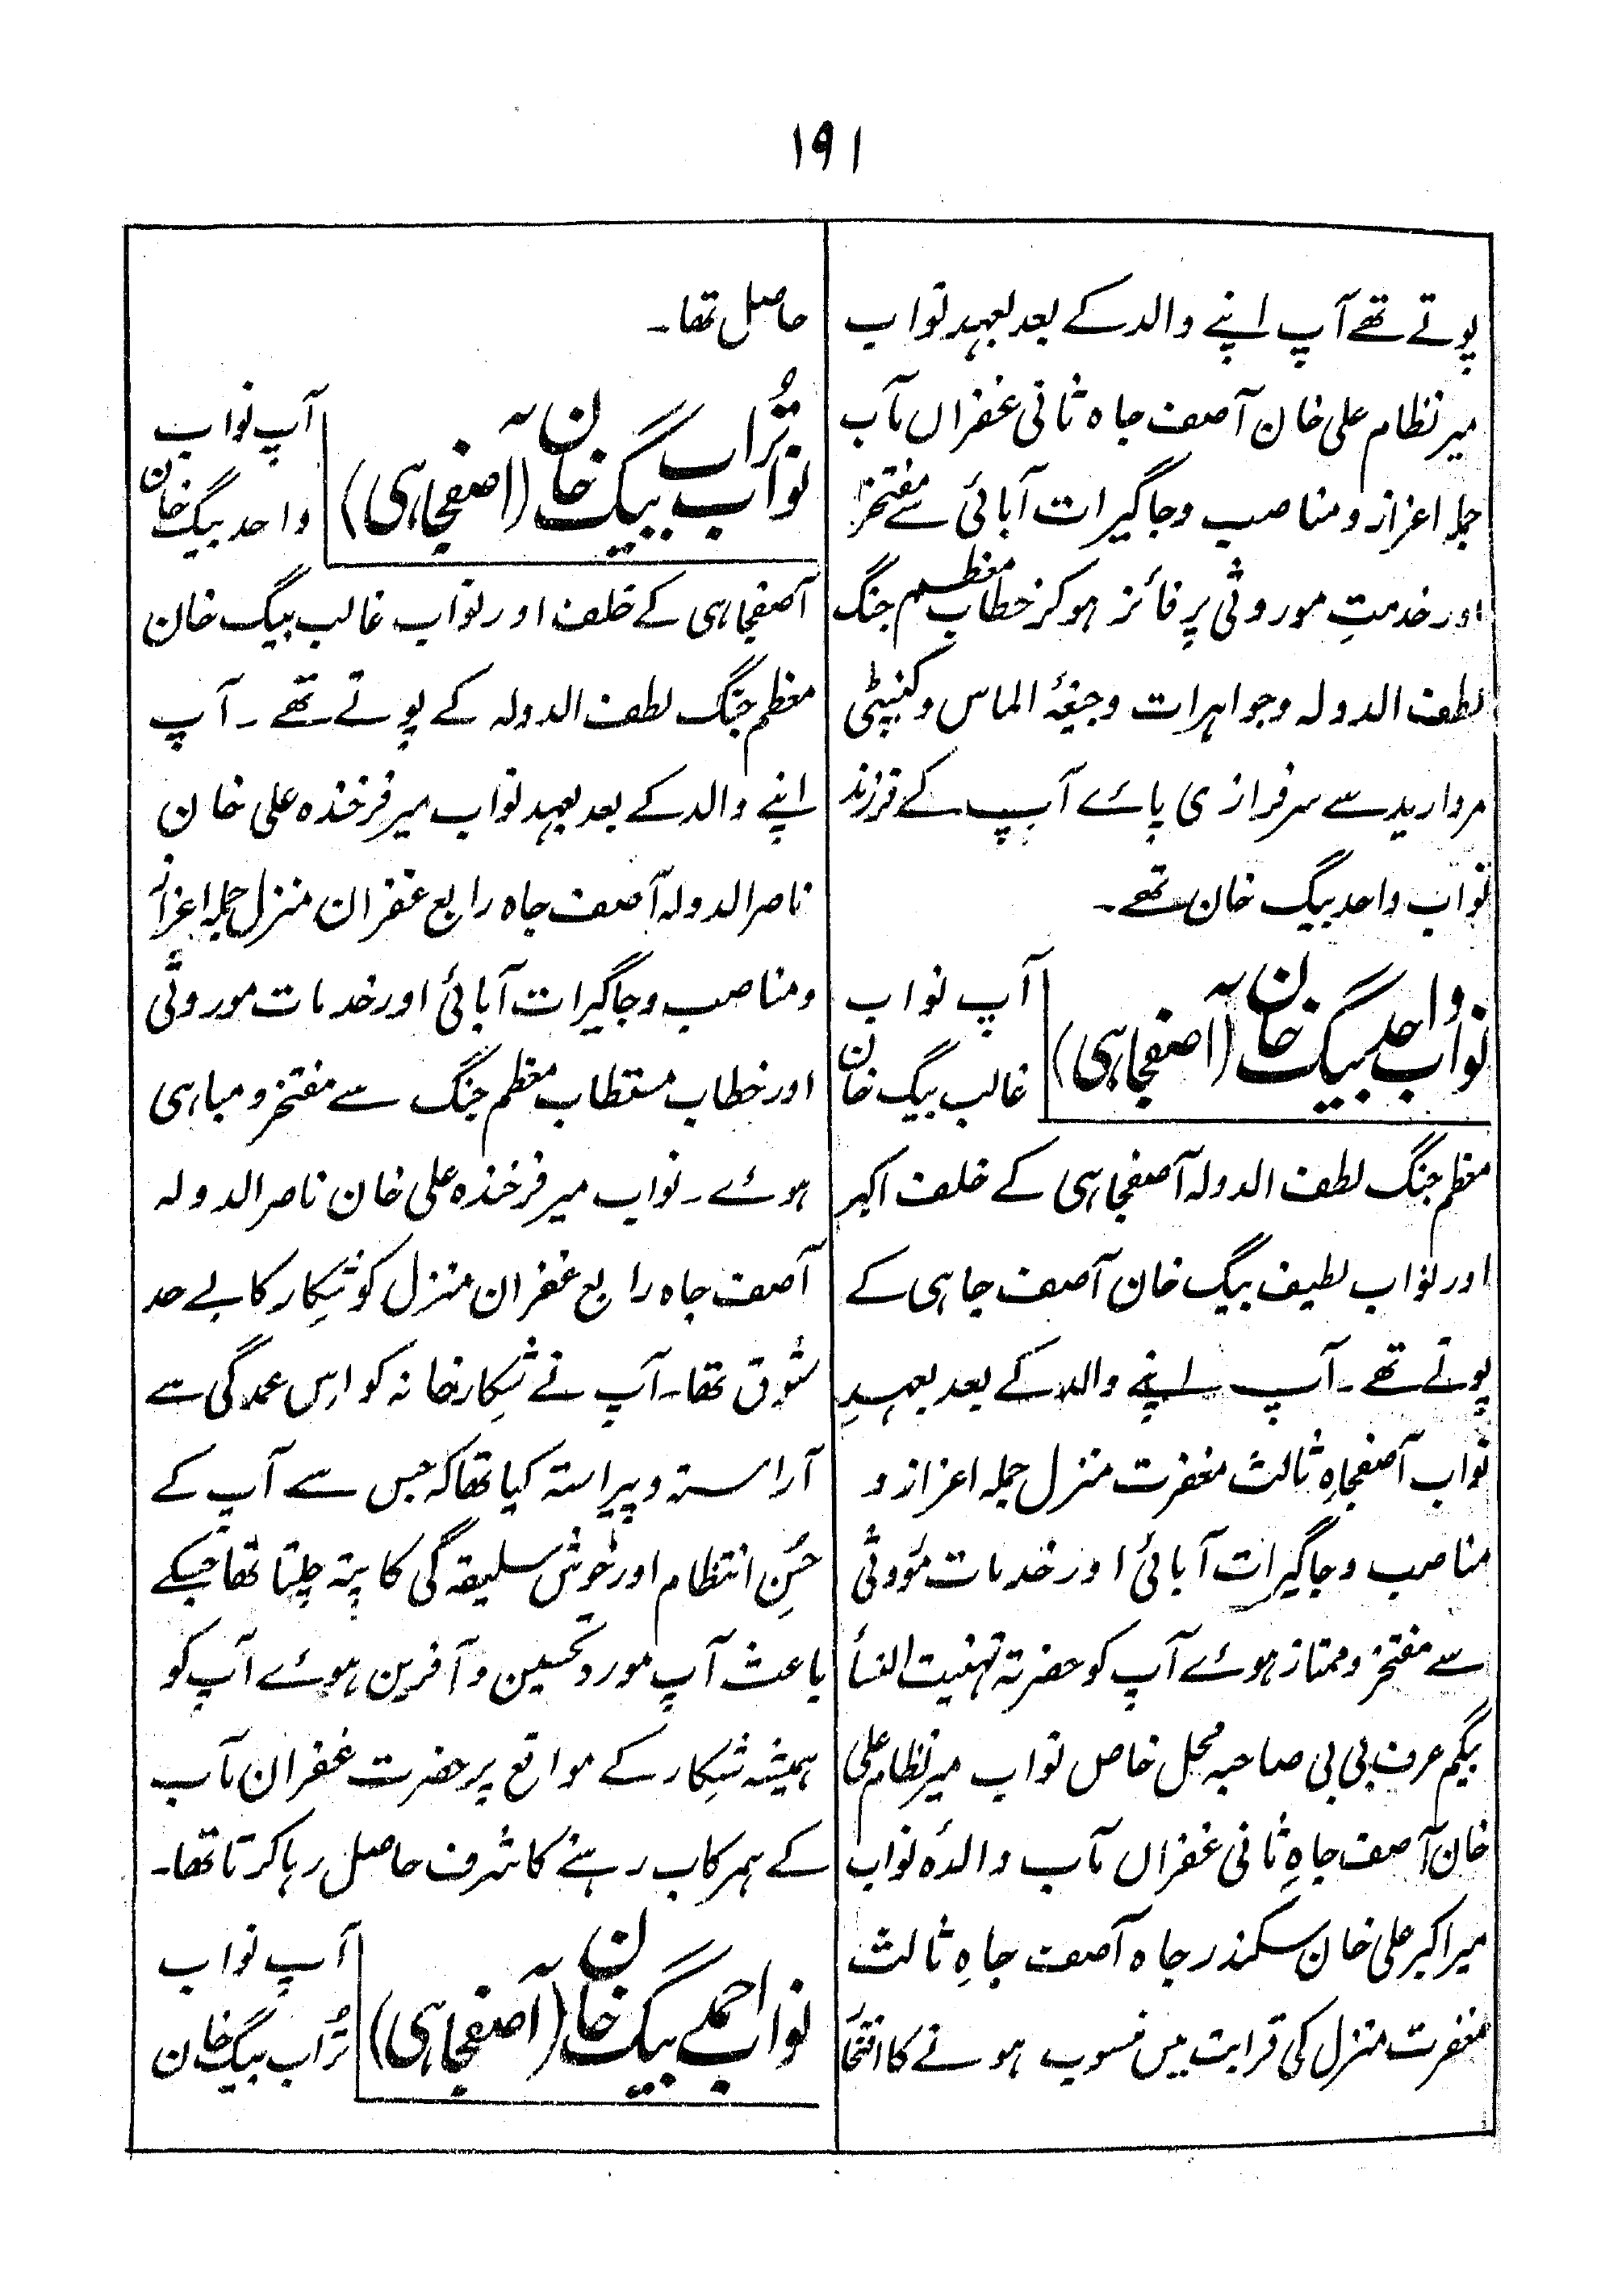 ۱۹۱
پوتے تھے آپ اپنے والد کے بعد بعہد نواب
میر نظام علی خان آصف جاہ ثانی غفراں مآب
جملہ اعزاز و مناصب و جاگیرات آبائی سے مفتخر
اور خدمتِ موروثی پر فائز ہو کر خطاب معظم جنگ
لطف الدولہ و جواہرات و جیغۂ الماس و کنپٹی
مروارید سے سرفرازی پائے آپ کے فرزند
نواب واحد بیگ خان تھے۔
نواب واحد بیگ خان (آصفجاہی)
آپ نواب
غالب بیگ خان
معظم جنگ لطف الدولہ آصفجاہی کے خلف اکبر
اور نواب لطیف بیگ خان آصف جاہی کے
پوتے تھے۔ آپ اپنے والد کے بعد بعہدِ
نواب آصفجاہِ ثالث مغفرت منزل جملہ اعزاز و
مناصب و جاگیرات آبائی اور خدمات موروثی
سے مفتخر و ممتاز ہوئے آپ کو حضرتہ تہنیت النسأ
بیگم عرف بی بی صاحبہ محل خاص نواب میر نظام علی
خان آصف جاہِ ثانی غفراں مآب والدۂ نواب
میر اکبر علی خان سکندر جاہ آصف جاہِ ثالث
مغفرت منزل کی قرابت میں منسوب ہونے کا افتخار
حاصل تھا۔
نواب تُراب بیگ خان (آصفجاہی)
آپ نواب
واحد بیگ خان
آصفجاہی کے خلف اور نواب غالب بیگ خان
معظم جنگ لطف الدولہ کے پوتے تھے۔ آپ
اپنے والد کے بعد بعہد نواب میر فرخندہ علی خان
ناصر الدولہ آصف جاہ رابع غفران منزل جملہ اعزاز
و مناصب و جاگیرات آبائی اور خدمات موروثی
اور خطاب مستطاب معظم جنگ سے مفتخر و مباہی
ہوئے۔ نواب میر فرخندہ علی خان ناصر الدولہ
آصف جاہ رابع غفران منزل کو شِکار کا بے حد
شوق تھا۔ آپ نے شِکار خانہ کو اِس عمدگی سے
آراستہ و پیراستہ کیا تھا کہ جس سے آپ کے
حُسنِ انتظام اور خوش سلیقہ گی کا پتہ چلتا تھا جسکے
باعث آپ مورد تحسین و آفرین ہوئے آپ کو
ہمیشہ شِکار کے مواقع پر حضرت غفران مآب
کے ہمرکاب رہنے کا شرف حاصل رہا کرتا تھا۔
نواب احمد بیگ خان (آصفجاہی)
آپ نواب
تُراب بیگ خان